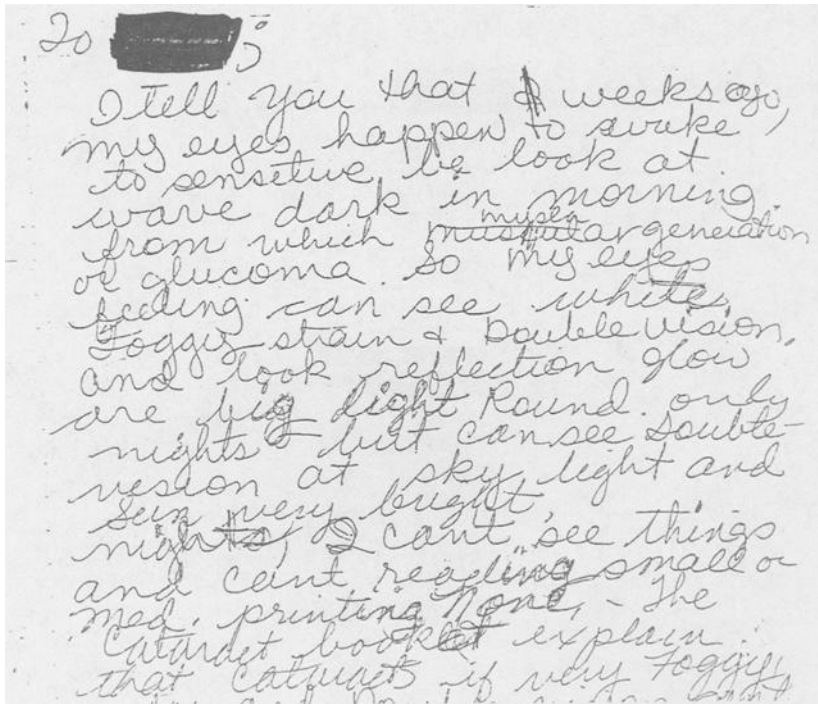 To
I tell you that weeks ago,
my eyes happen to awake
to sensetive, be look at
wave dark in morning.
from which generation
or glucoma. So my eyes
feeling can see white,
Foggy strain & Double vision.
and look reflection glow
are big light Round. only
nights - but can see double-
vesion at sky light and
Sun very bright,
nights, I cant see things
and cant reading small or
med. printing None, - The
Cataract booklet explain
that cataracts if very Foggy,